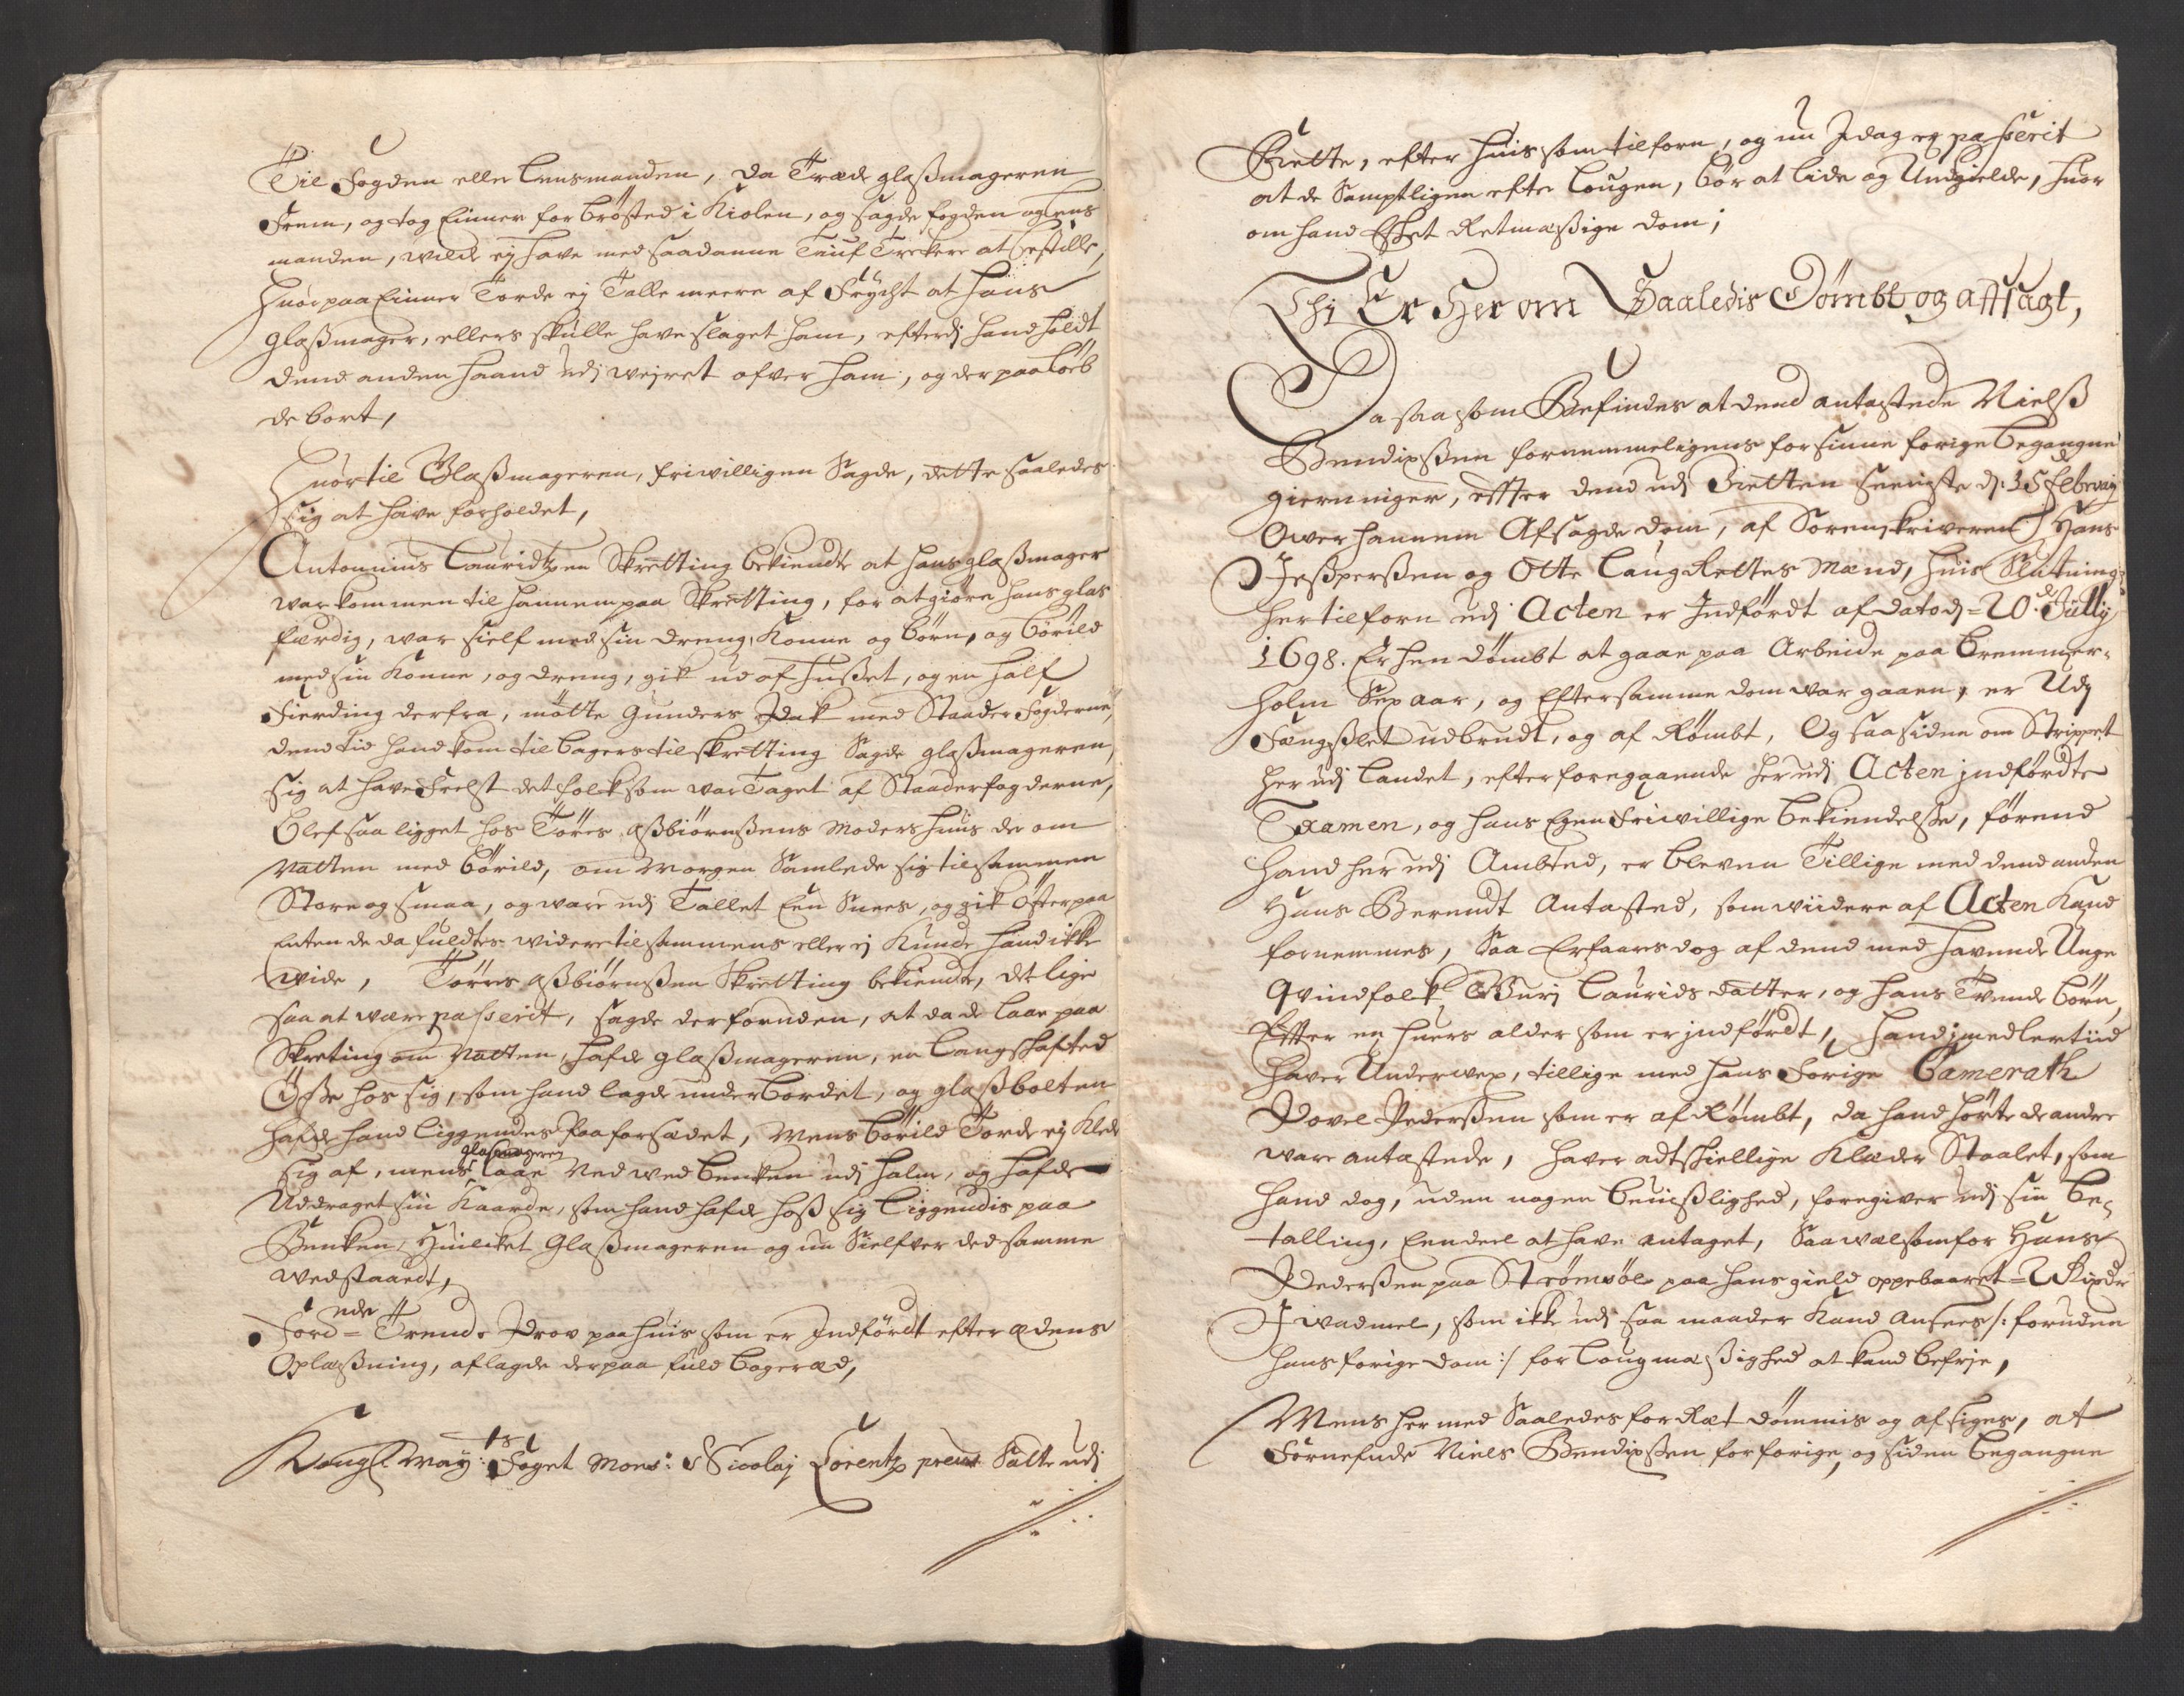 Til Fogden eller Lensmanden, da Træde glaßmageren
Frem, og tog Einner for brösted i Kiolen, og sagde fogden og Lens
manden, wilde ej have med saadanne Tiuf Trekere at bestille,
Huorpaa Einner Torde ej Talle meere af Frycht at Hans
Glaßmager, ellers skulle have slaget ham, efterdj hand holdt
dend anden haand udj weyret ofver ham, og der paa Löb
de bort,
Huortil Glaßmageren, friwilligen Sagde, dette saaledes
sig at have forholdet,
Antonnius Lauridtzen Skretting bekiendte at hans glaßmager
war kommen til hannem paa Skretting, for at giöre hans glas
færdig, war sielf med sin dreng, Konne og börn, og Börild
med sin Konne, og dreng, gik ud af Hußet, og en half
Fierding derfra, mötte Gunders Jsak med Staader Fogderne,
dend tid hand kom tilbagers til skretting Sagde glaßmageren,
sig at have Frelst det folk som war Taget af Staaderfogderne,
Blef saa ligget hos Törres Aßbiörnßens Moders huus de om
Natten med Börild, om Morgen Samlede sig tilsammen
Store og smaa, og ware udj Tallet Een Snees, og gik Öster paa
Enten de da fuldtes widere tilsammens eller ej Kunde hand ikke
wide, Törres Aßbiörnßen Skretting bekiende, det lige
saa at være passerit, sagde derforuden, at da de laae paa
Skreting om Natten, hafde glaßmageren, en Langskafted
Öxse hos sig, som hand lagde under bordet, og glaßbolten
hafde hand liggendes paa forsædet, Mens Börild Torde ej Klæde
sig af, mens glasmageren laae Ned wed benken udj halm, og hafde
Uddraget sin Kaarde, som hand hafde hoß sig liggendis paa
Benken, Huilcket Glaßmageren og nu Sielfver ded samme
wedstaaedt,
Ford nde Trende Prov paa huis som er Indfördt efter Ædens
Oplæßning, aflagde derpaa fuld bogeræd,
Kongl May ts Foget Mons: Nicolaj Lorentz preus Satte udj
Rette, efter huis som tilforn, og nu Jdag er passerit
at de Samptligen efter Lougen, bör at lide og Undgielde, huor
om hand Esket Retmæßige dom;
Thj Er Her om Saaledis Dömbt og affsagt,
Da saa som Befindes at dend antastede Nielß
Bendixßen fornemmeligens for sinne forige begangne
gierninger, efter dend udj Rætten seeniste d: 15 Februarij
Ower hannem Afsagde dom, af Sorenskriveren Hans
Jeßperßen og Otte Laug Rettes Mænd, huis Slutning
her tilforn udj Acten er Indfördt af dato d= 20 de Jullij
1698. Er hen dömbt at gaae paa Arbeide paa Bremmer-
holm Sex aar, og Efter samme dom war gaaen, er Udj
Fængßlet udbrudt, og af Römbt, Og saa siden om Strippet
her udj Landet, efter foregaaende her udj Acten jndfördte
Examen, og hans Egen Friwillige bekiendelse, förend
hand her udj Ambted, er bleven Tillige med dend anden
Hans Berendt Antasted, som wiidere af Acten Kand
fornemmes, Saa Erfaares dog af dend med hafuende Unge
Qvindfolk Guri Laurids datter, og hans Tvende börn,
Efter en huers alder som er jndfördt, hand jmedlertiid
haver Underwex, tillige med hans Forige Camerath
Povel Pederßen som er af Römbt, da hand hörte de andre
ware antastede, haver adtskiellige Klæder Staalet, som
hand dog, uden nogen beuißlighed, foregiver udj sin be-
talling, Eendeel at have antaget, Saawelsom for Hans
Pederßen paa Strömsöe paa hans gield oppebaaret = 2 Rixdr
J wadmel, som ikke udj saa maader Kand ansees /: foruden
hans forige dom :/ for Lougmæßighed at kand befrje,
Mens her med Saaledes for Ræt dömmis og afsiges, at
Fornefnde Niels Bendixßen for forige, og siden begangne